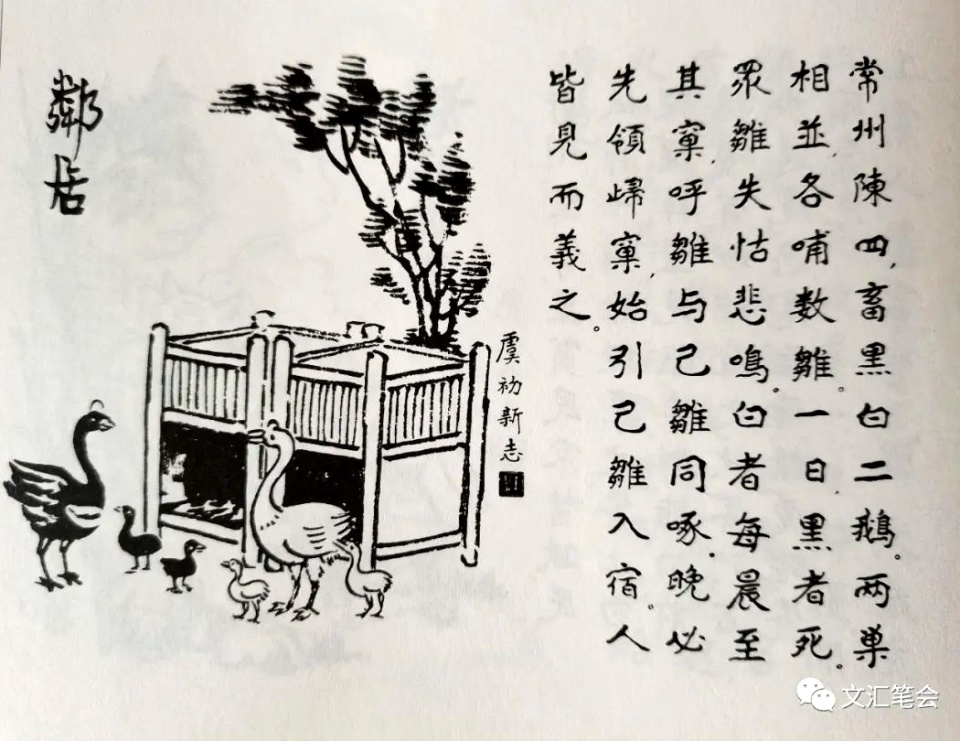 常州陳四,畜黑白二鵝。两巢
相並,各哺数雛。一日,黑者死。
眾雛失怙悲鳴。白者每晨至
其窠,呼雛与己雛同啄。晚必
先領歸窠,始引己雛入宿。人
皆見而義之。
虞初新志
鄰居
文汇笔会